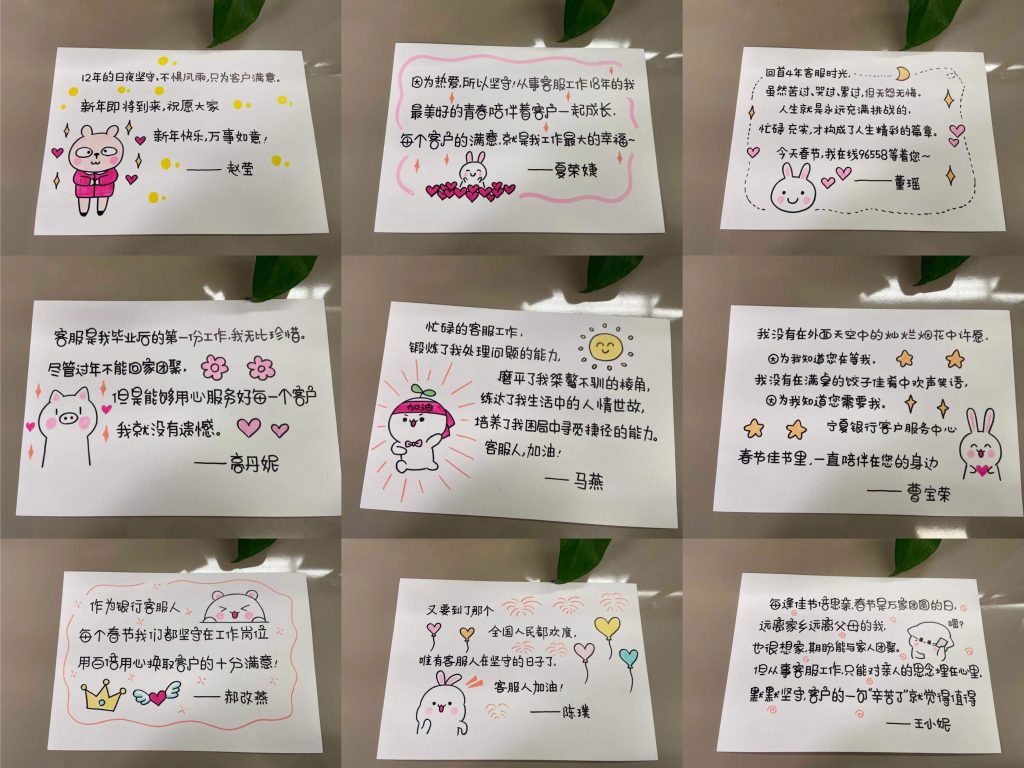 12年的日夜坚守,不惧风雨,只为客户满意。
新年即将到来,祝愿大家
新年快乐,万事如意!
——赵莹
因为热爱,所以坚守!从事客服工作18年的我
最美好的青春陪伴着客户一起成长.
每个客户的满意,就是我工作最大的幸福~
——夏荣姨
回首4年客服时光.
虽然苦过、哭过、累过,但无怨无悔.
人生就是永远充满挑战的,
忙碌充实,才构成了人生精彩的篇章。
今天春节,我在线96558等着您~
——董瑶
客服是我毕业后的第一份工作,我无比珍惜。
尽管过年不能回家团聚,
但是能够用心服务好每一个客户
我就没有遗憾。
——高丹妮
忙碌的客服工作,
锻炼了我处理问题的能力,
磨平了我桀骜不驯的棱角,
练达了我生活中的人情世故,
培养了我困局中寻觅捷径的能力。
客服人,加油!
——马燕
加油
我没有在外面天空中的灿烂烟花中许愿.
因为我知道您在等我.
我没有在满桌的饺子佳肴中欢声笑语,
因为我知道您需要我。
宁夏银行客户服务中心
春节佳节里,一直陪伴在您的身边
——曹宝荣
作为银行客服人
每个春节我们都坚守在工作岗位
用百倍用心换取客户的十分满意!
——郝改燕
又要到了那个
全国人民都欢度,
唯有客服人在坚守的日子了.
客服人加油!
——陈璞
每逢佳节倍思亲,春节是万家团圆的日,
远离家乡远离父母的我,
嗯?
也很想家,期盼能与家人团聚。
但从事客服工作,只能对亲人的思念埋在心里,
默默坚守,客户的一句"辛苦了"就觉得值得
——王小妮